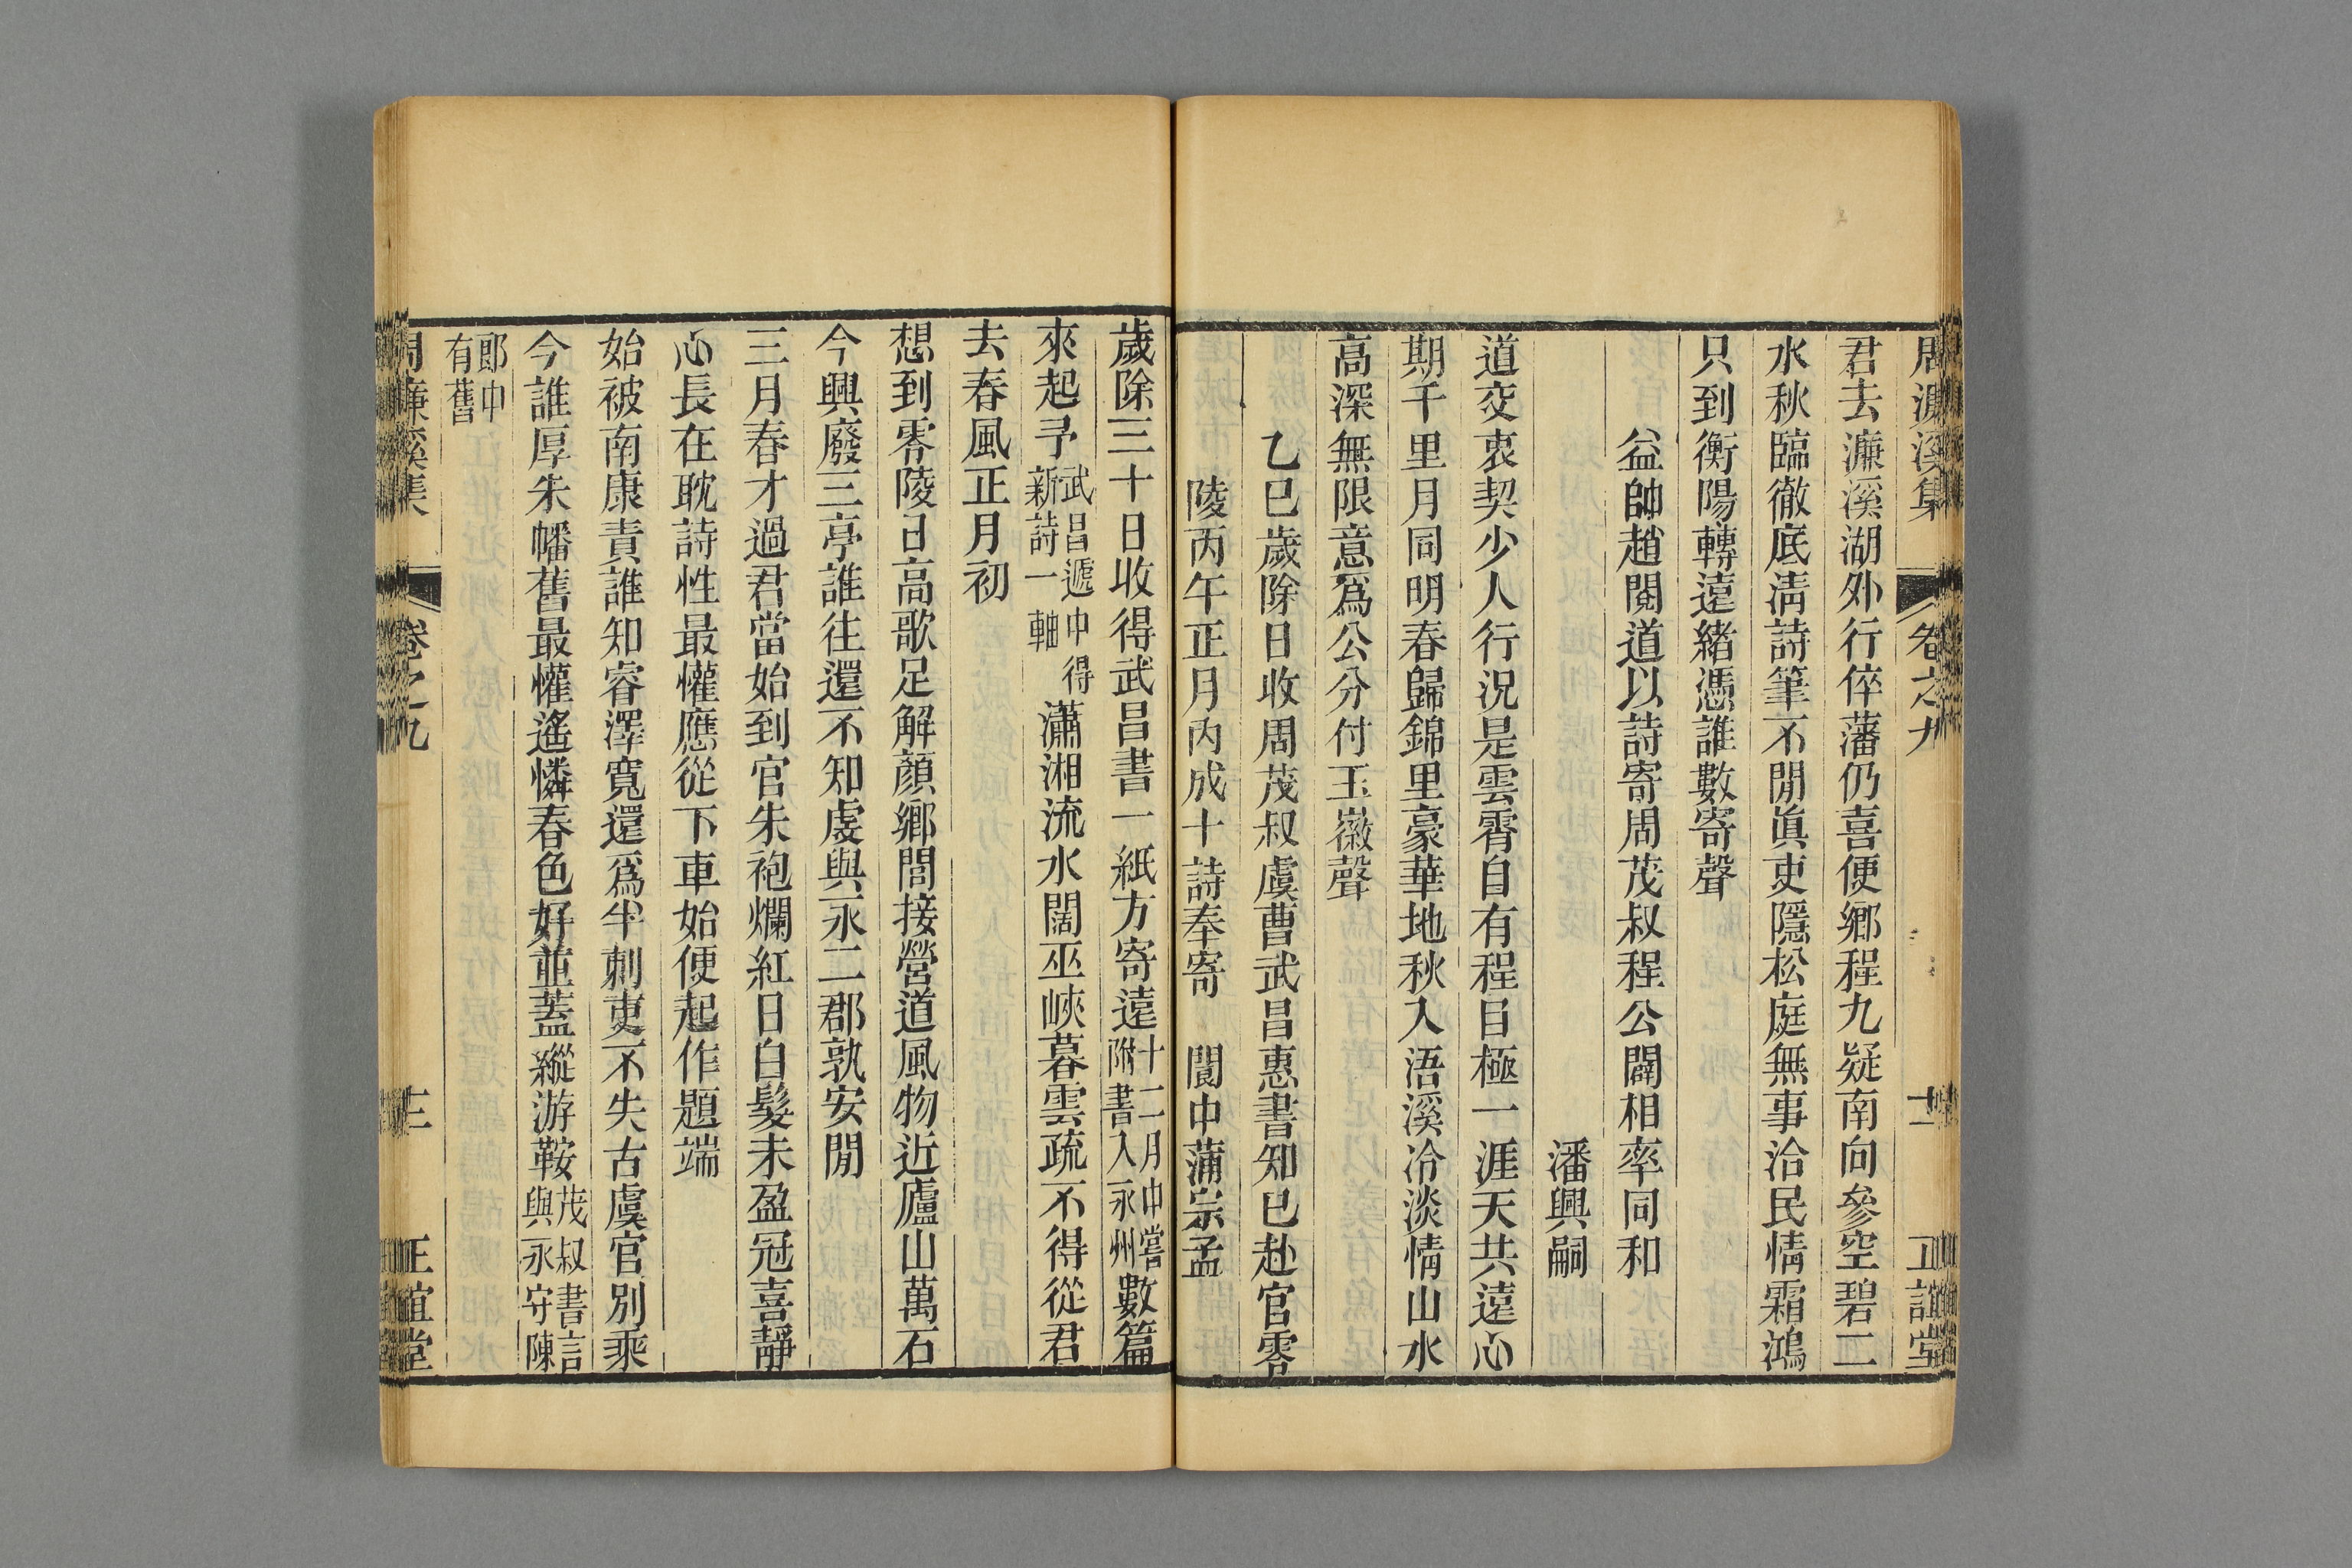 周濂溪集 卷之九 十二 正誼堂
君去濂溪湖外行倅藩仍喜便鄉程九疑南向參空碧二
水秋臨徹底清詩筆不閒眞吏隱松庭無事洽民情霜鴻
只到衡陽轉遠緒憑誰數寄聲
益帥趙閱道以詩寄周茂叔程公闢相率同和
潘興嗣
道交衷契少人行況是雲霄自有程目極一涯天共遠心
期千里月同明春歸錦里豪華地秋入浯溪冷淡情山水
高深無限意爲公分付玉徽聲
乙巳歲除日收周茂叔虞曹武昌惠書知已赴官零
陵丙午正月內成十詩奉寄 閬中蒲宗孟
歲除三十日收得武昌書一紙方寄遠十二月中嘗附書入永州數篇
來起予武昌遞中得新詩一軸瀟湘流水闊巫峽暮雲疏不得從君
去春風正月初
想到零陵日高歌足解顏鄉閭接營道風物近廬山萬石
今興廢三亭誰往還不知虔與永二郡孰安閒
三月春才過君當始到官朱袍爛紅日白髮未盈冠喜靜
心長在耽詩性最懽應從下車始便起作題端
始被南康責誰知睿澤寬還爲半刺吏不失古虞官別乘
今誰厚朱幡舊最懽遙憐春色好並蓋縱游鞍茂叔書言與永守陳
郎中有舊
周濂溪集 卷之九 正誼堂